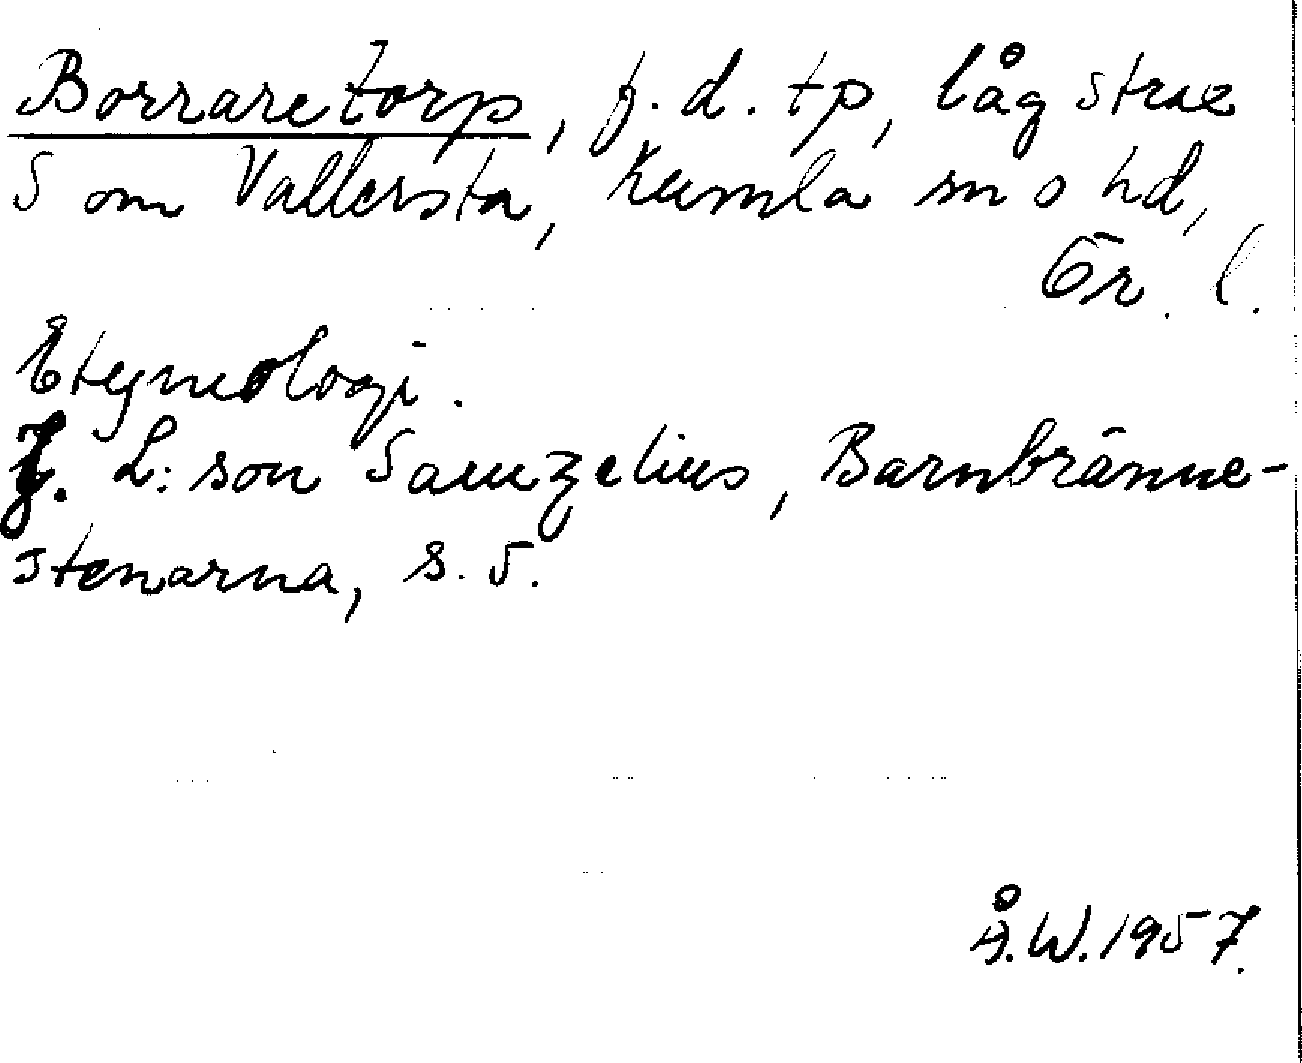 Borraretorp, f.d. tp, låg strax
S om Vallersta, Kumla sn o hd,
Ör. l.
Etymologi.
J. L:son Samzelius, Barnbränne-
stenarna, s. 5.
Å.W. 1957.